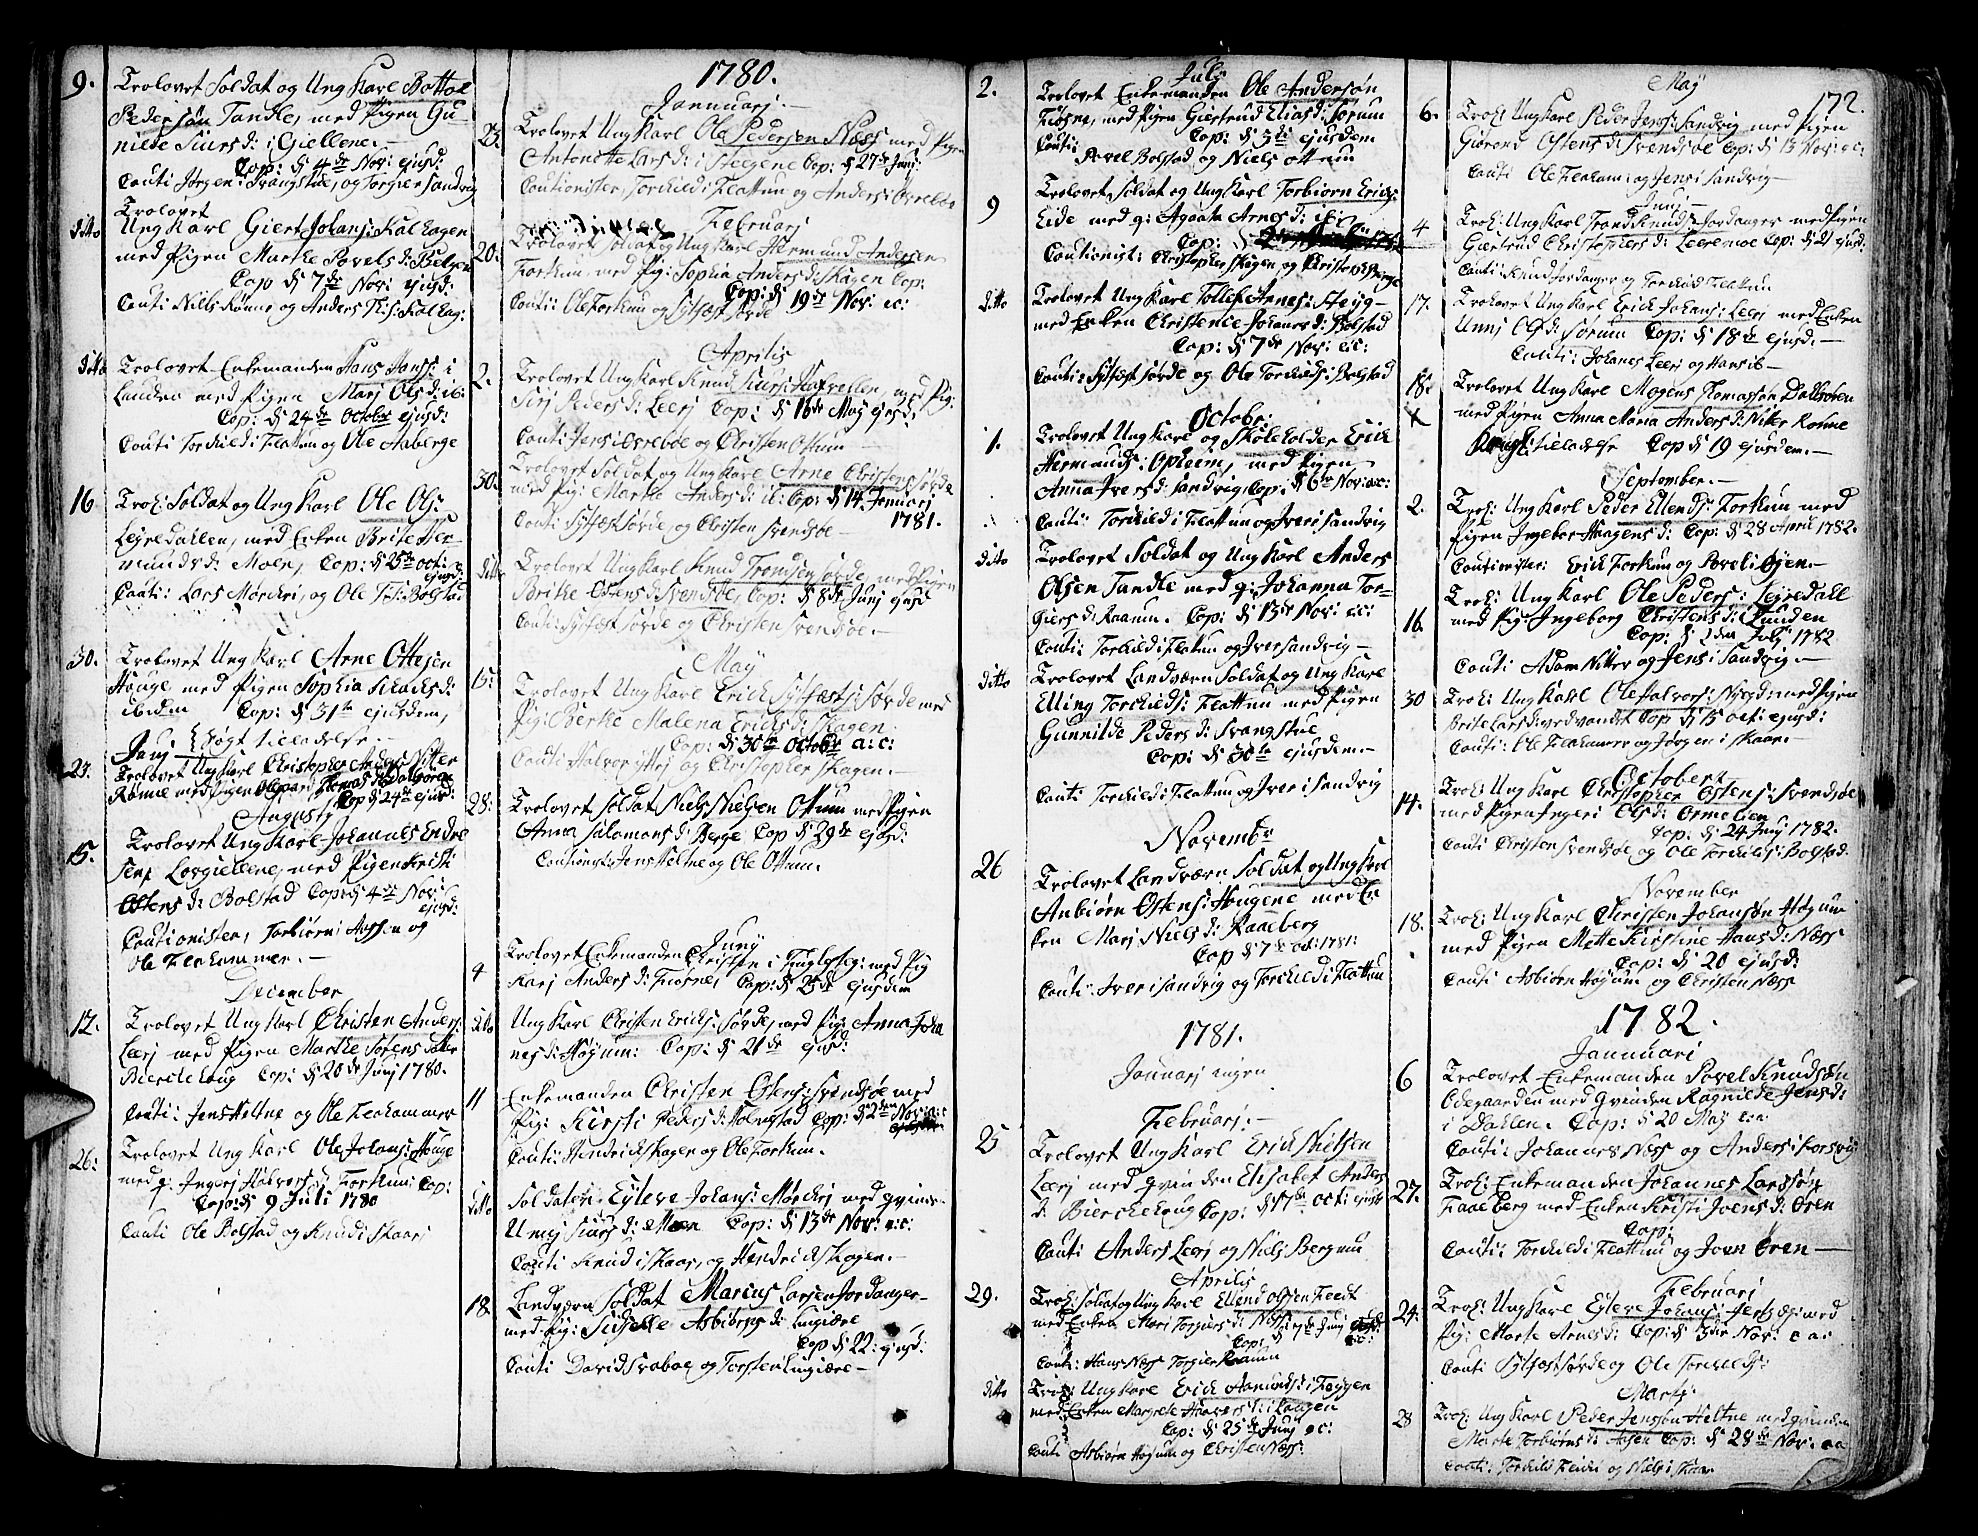 9. Trolovet Soldat og Ung Karl Bottol
Pedersøn Tandle, med Pigen Gu-
nilde Siurs d: i Giellene.
Cop: d 4de Nov: ejusd:
Cauti Jørgen i Svangstue, og Torgier Sandvig
ditto Trolovet
Ung Karl Giert Johans: Kalhagen
med Pigen Marthe Povels d:
Cop d 7de Nov: ejusd:
Cauti: Niels Rønne og Anders
ditto Trolovet Enkemanden Hans Janss: i
Landen med Pigen Marj Ols d: ib:
Cop: d 24de October ejusd:
Cauti Torkild i Flattum og Ole Aaberge
16 Trol: Soldat og Ung Karl Ole Ols:
Leiredallen, med Enken Brite Her-
munds d: Moen, Cop: d 25de oct:
ejusd:
Cauti: Lars Mørchri, og Ole Bolstad
30. Trolovet Ung Karl Arne Ottesen
Houge med Pigen Sophia d:
ibidem Cop: d 31te ejusdem,
høgt tilladelse
24. Trolovet Ung Karl Christopher Nitter
Rønne med Pigen
Cop d 24de ejusd:
Augusty
15. Trolovet Ung Karl Johannes Endre
sens Lorgiellene, med Pigen Kristi
Ostens d: Bolstad Cop: d 4de Nov:
ejusd:
Cautionister, Torbiørn Assen og
Ole Flahammer.
December
12. Trolovet Ung Karl Christen Anders:
Leerj med Pigen Marthe Sørens datter
Bierckehoug Cop: d 20de Junj 1780.
Cauti: Jens Heltne og Ole Flahammer
26: Trolovet Ung Karl Ole Johans: Houge
med p: Ingerj Halvors d: Forthun: Cop:
Cop: d 9 Juli 1780
Cauti Ole Bolstad og Knud i Skaar
1780.
Januarj.
23. Trolovet Ung Karl Ole Pedersen Næss med Pigen
Antonette Lars d: i Steegene Cop: d 27de Junj:
Cautionister, Torkild i Flattum og Anders i Ovrebøe
Februarj
20. Trolovet Soldat og Ung Karl Hermund Andersen
Forthun, med Pig: Sophia Anders d: Skagen Cop:
Cop: d 19de Nov: a:c:
Cauti: Ole Forthun og Sylfæst Sørde
Aprilis
2. Trolovet Ung Karl Knud Siurs: med Pig:
Sirj Peders d: Leerj Cop: d 16de Maij ejusd:
Cauti Jens i Ovrebøe og Christen Ottum
30. Trolovet Soldat og Ung Karl Arne Christens: Sørde
med Pig: Marthe Anders d: Cop: d 14. Januarj
1781.
Cauti Sylfæst Sørde, og Christen Svensøe
ditto Trolovet Ung Karl Knud Tronsen Sørde, med Pigen
Brithe Ostens d: Svensøe, Cop: d 8de Junj ejusd
Cauti: Sylfæst Sørde og Christen Svensøe.
Maij
15. Trolovet Ung Karl Erich Sylfæsts: Sørde med
Pig: Berthe Malena Erichs d: Skagen
Cop: d 30te October a:c:
Cauti Halvor Yttrj og Christopher Skagen.
28: Trolovet Soldat Niels Nielsen Ottum med Pigen
Anna Salamons d: Berge Cop d 29de ejusd:
Cautionist: Jens Heltne og Ole Ottum.
Junij
4 Trolovet Enkemanden Christen i Fuglesteg: med Pig
Karj Anders d: Fiøsne, Cop: d 25de ejusdem
ditto Ung Karl Christen Erichs: Sørde, med Pig: Anna Joha
nes d: Høyum: Cop: d 21de ejusd:
11 Enkemanden Christen Ostens: Svensøe med
Pig: Kirsti Peders d: Holmstad Cop: d 2den Nov: a:c:
Cauti: Hendrich Skagen og Ole Forthun.
ditto Soldaten Eyleve Johans: Mørchrj med qvinde
Unnij Siurs d: Moen Cop: d 13de Nov: a:c:
Cauti Knud i Skaar, og Hendrich Skagen.
18. Landværn Soldat Marcus Larsen Jordanger
med Pig: Sidselle Asbiørns d: Lingiære
Cop d 22: ejusd:
Cauti David Svaboe og Torsten Lingiære
Juli
2. Trolovet Enkemanden Ole Andersøn
Fiøsne, med Pigen Giertrud Elias d: Sørum
Cop: d 3de ejusdem
Cauti:
Povel Bolstad og Niels Ottum
9 Trolovet, Soldat og Ung Karl Torbiørn Erichs:
Eide med p: Agaata Arnes d: ib:
Cop: d
Cautionist: Christopher Skagen og Christen
ditto Trolovet Ung Karl Tollef Arnes: Steig
med Enken Christence Johanes d: Bolstad
Cop: d 7de Nov: a:c:
Cauti: Sylfæst Sørde og Ole Torkilds: Bolstad
Octobr:
1. Trolovet Ung Karl og Skoleholder Erich
Hermunds: Opheim, med Pigen
Anna Ivers d: Sandvig, Cop: d 6te Nov: a:c:
Cauti: Torkild i Flattum og Iver i Sandvig
ditto Trolovet Soldat og Ung Karl Anders
Olsen Tandle med p: Johanna Tor-
giers d: Raaum. Cop: d 13de Nov: a:c:
Cauti: Torkild i Flattum og Iver Sandvig
ditto Trolovet Landværn Soldat og Ung Karl
Elling Torkilds: Flattum med Pigen
Gunnilda Peders d: Svangstue
Cop: d 30te ejusdem
Cauti Torkild i Flattum og Iver i Sandvig
Novembr
26 Trolovet Landværn Soldat og Ung Karl
Anbiørn Ostens: Hougene med En
ken Marj Niels d: Kaaberg
Cop d 7de oct: 1781:
Cauti: Iver i Sandvig og Torkild i Flattum
1781.
Januarj ingen
Februarj:
25 Trolovet Ung Karl Erich Nielsen
Leerj med qvinden Elisabet Anders
d: Bierckehoug Cop: d 17de oct: ejusd
Cauti Anders Leerj og Niels Bergum
Aprilis
29. Trol: Soldat og Ung Karl Ellend Olsen Feedt
med Enken Mari Torgiers d: Næss d 7de Junj
Cop: a:c:
Cauti: Hans Næss Torgier Raaum
ditto Trol: Ung Karl Erich Aamunds: i Feigen
med Enken Margrete Havers d: i Haugen
Cop: d 25de Junj a:c:
Cauti Asbiørn Høyum og Christen Næss:
172.
Maij
6. Trol: Ung Karl Peder Jens: Sandvig med Pigen
Giørond Ostens d: Svensøe Cop: d 13 Nov: a:c:
Cauti Ole Flahamr: og Jens i Sandvig
Junij
4 Trol: Ung Karl Trond Knuds: Jordanger med Pigen
Giertrud Christophers d: Leermoe Cop: d 21 ejusd:
Cauti: Knud Jordanger og Torkild Flattum
17. Trolovet Ung Karl Erich Johans: Leerj med Enken
Unni Ols d: Sørum Cop: d 18de ejusd.
Cauti: Johanes Leerj og Hans ib
18. Trolovet Ung Karl Mogens Thomassøn Dahlsøren
X med Pigen Anna Maria Anders d: Nitter Rønne
Kongl: tiladelse Cop d 19 ejusdem.
September.
2. Trol: Ung Karl Peder Ellends: Forthun med
Pigen Ingebor Haagens d: Cop: d 28 April 1782.
Cautionister: Erich Forthun og Povel i Øyen.
16. Trol: Ung Karl Ole Peders: Leiredall
med Pig: Ingeborg Christens d: Lunden
Cop: d 2den Julij 1782
Cauti Adam Nitter og Jens i Sandvig.
30 Trol: Ung Karl Ole Halvors: Nyegd: med Pigen
Brite Lars d: vedvandet Cop d 15 oct: ejusd:
Cauti: Ole Flahamer og Jørgen i Skaar.
October
14. Trol: Ung Karl Christopher Ostens: Svensøe
med Pigen Ingeri Ols d: Ormelien
Cop: d 24 Junij 1782.
Cauti Christen Svensøe og Ole Torkilds: Bolstad.
November
18. Trol: Ung Karl Christen Johansøn Høyum
med Pigen Mette Kirstine Hans d: Næss
Cop: d 20 ejusd:
Cauti Asbiørn Høyum og Christen Næss
1782.
Januari
6 Trolovet Enkemanden Povel Knudsøn
Ødegaarden med qvinden Ragnilde Jens d:
i Dahlen. Cop: d 20 Maij a:c:
Cauti: Johannes Næss og Anders i Forsvig
27. Trol: Enkemanden Johannes Larssøn
Faaeberg med Enken Kristi Joens d: Øren
Cop:
Cauti: Torkild i Flattum og Joen Øren
Februari
24. Trol: Ung Karl Eyleve Johans: med
Pig: Marte Arnes d: Cop: d 3die Nov: a:c:
Cauti Sylfæst Sørde og Ole Torkilds:
Martij
28 Trol: Ung Karl Peder Jenssøn Heltne med qvinden
Marte Torbiørns d: Assen Cop: d 28de Nov: a:c
Cauti: Torkild og Niels i Skaar